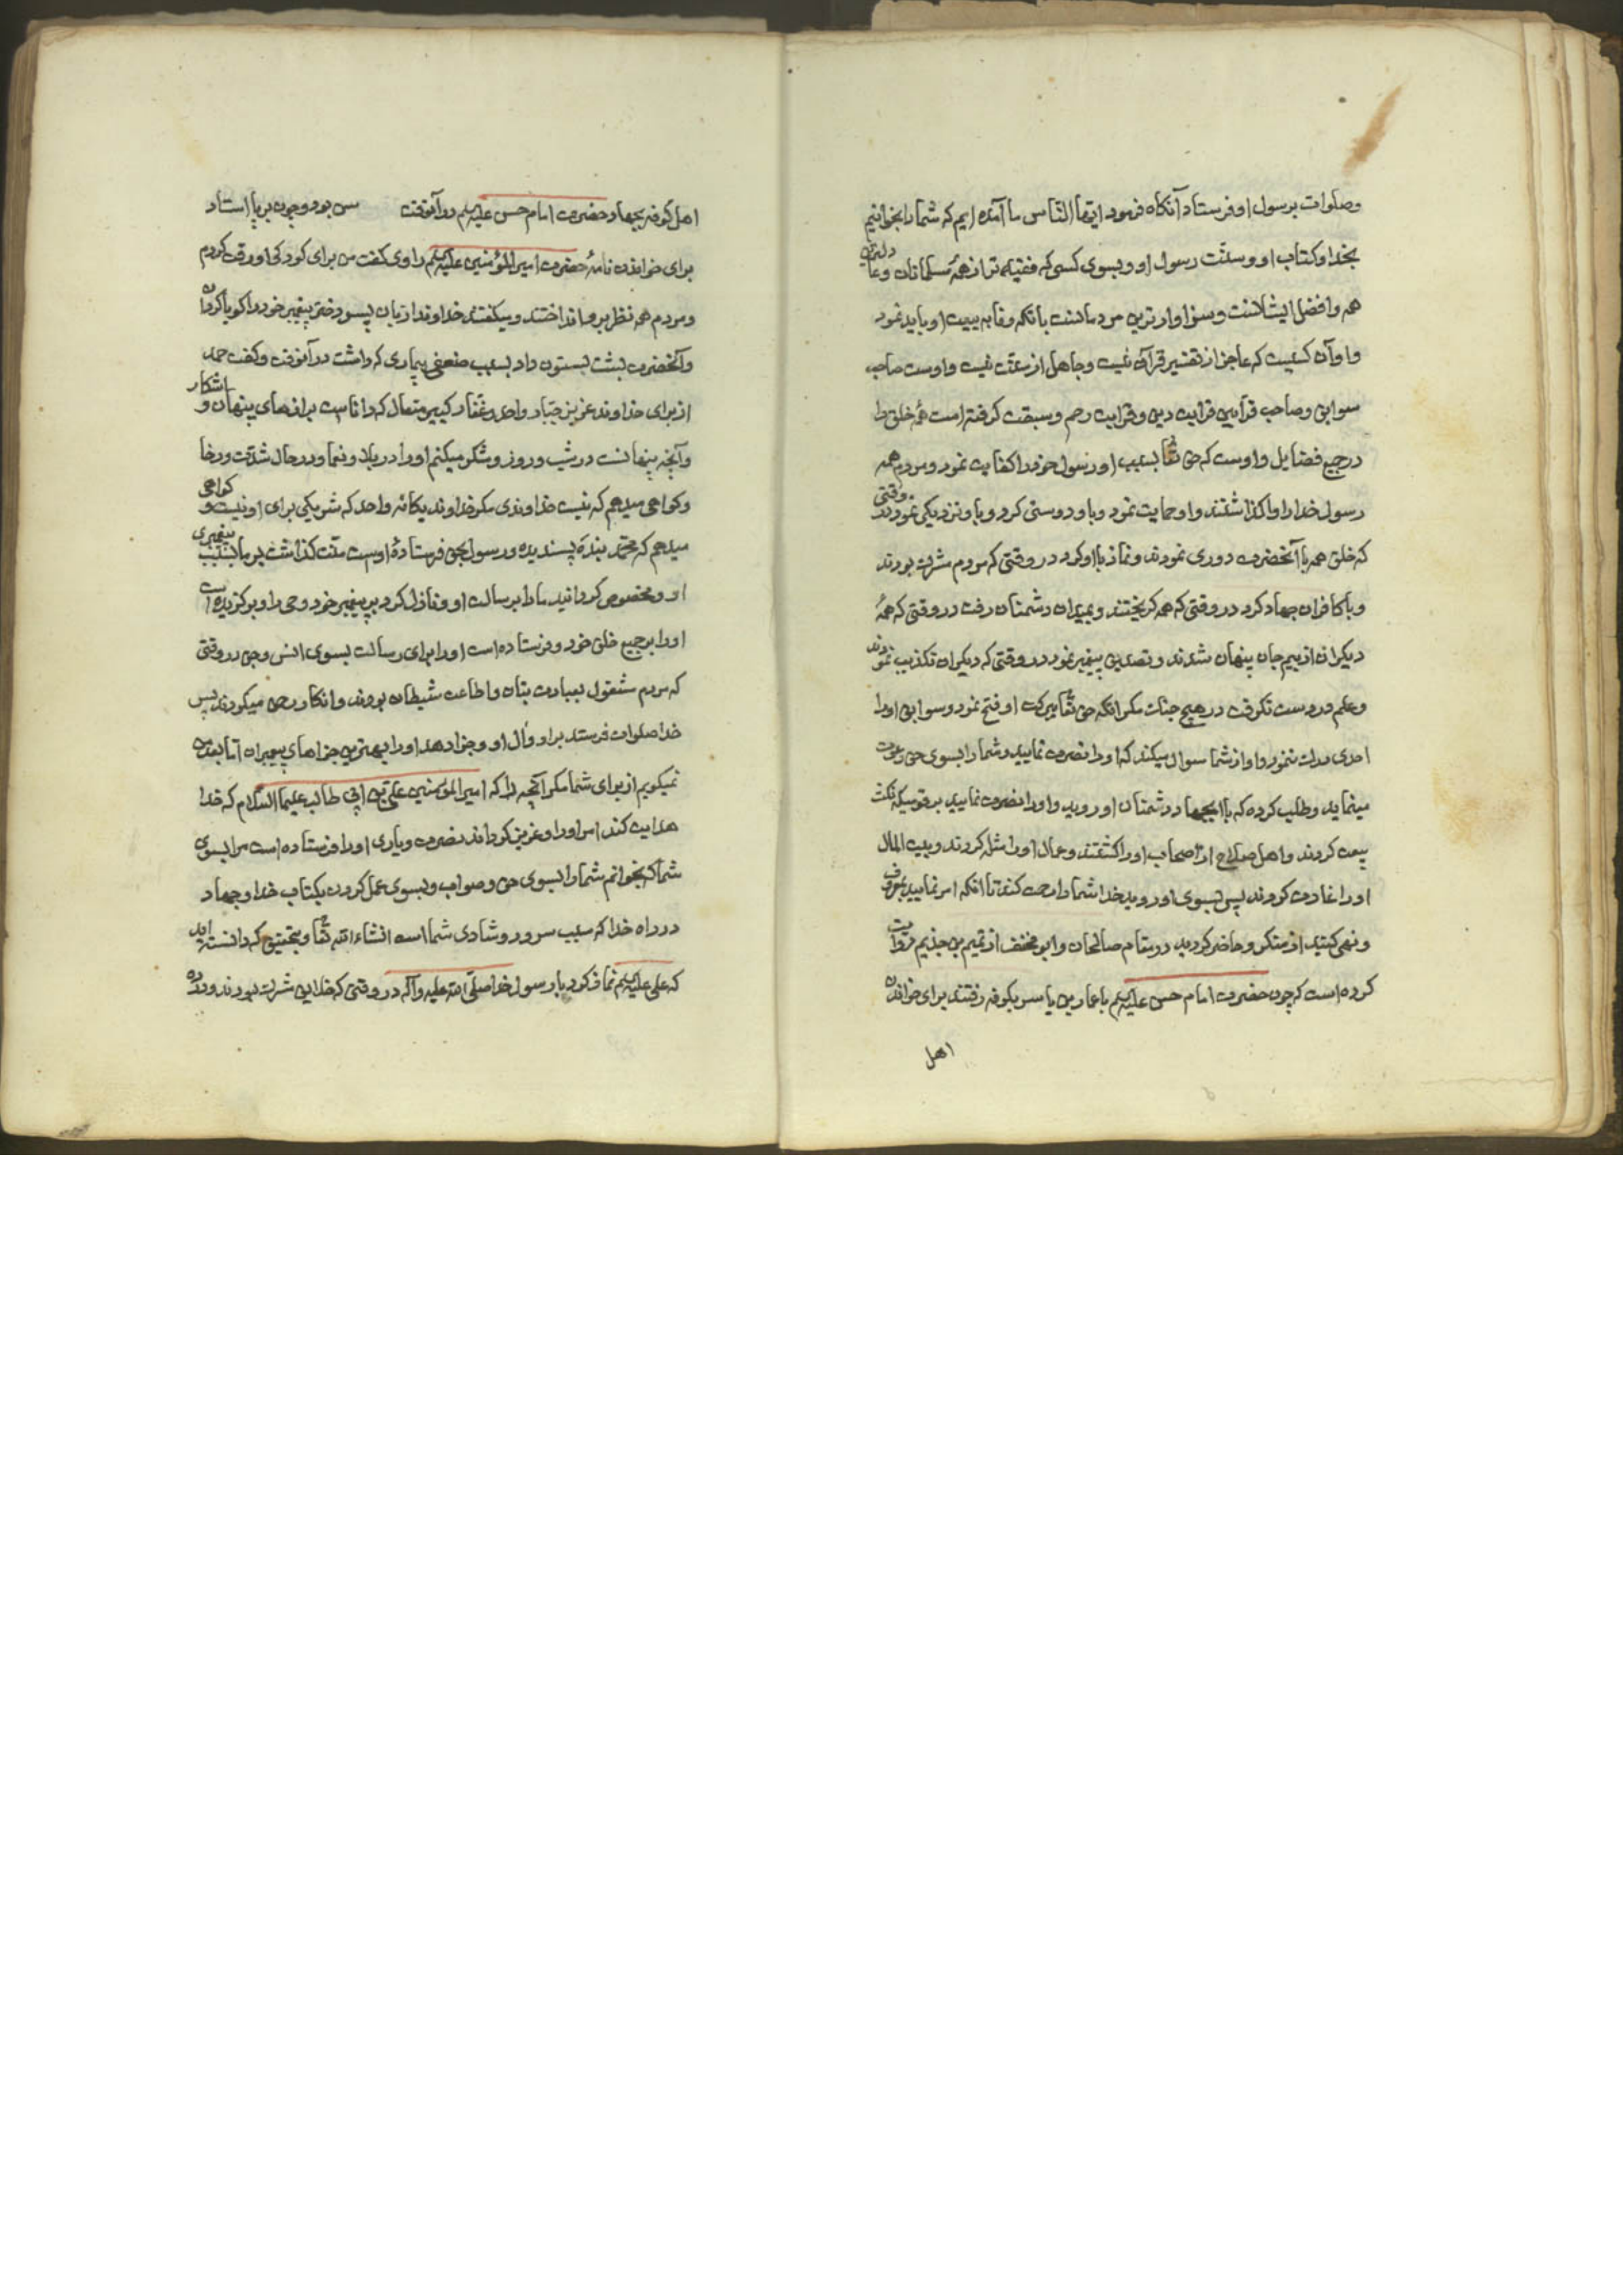 وصلوات برسول او فرستاد آنکاه فرمود ایّها النّاس ما آمده ایم که شما را بخوانیم
بخدا و کتاب او و سنّت رسول او و بسوی کسی که فقیه تر از همهٔ مسلمانان و عادلترین
همه و افضل ایشانست و سزاوارترین مردمانست بانکه وفا به بیعت او باید نمود
و او آن کسیست که عاجز از تفسیر قرآن نیست و جاهل از سنّت نیست و اوست صاحب
سوابق و صاحب قرابتین قرابت دین و قرابت رحم و سبقت کرفته است همهٔ خلق را
در جمیع فضایل و اوست که حق تعالی بسبب او رسول خود را کفایت نمود و مردم همه
رسول خدا را واکذاشتند و او حمایت نمود و باو دوستی کرد و باو نزدیکی نمود در وقتی
که خلق همه با آنحضرت دوری نمودند و نماز با او کرد در وقتی که مردم مشرک بودند
و با کافران جهاد کرد در وقتی که همه کریختند و بمیدان دشمنان رفت در وقتی که همهٔ
دیکران از بیم جان پنهان شدند و تصدیق پیغمبر نمود در وقتی که دیکران تکذیب نمودند
و علم در دست نکرفت در هیچ جنک مکر انکه حق تعالی ببرکت او فتح نمود و سوابق او را
احدی درک ننمود و او از شما سوال میکند که او را نصرت نمایید و شما را بسوی حق دعوت
مینماید و طلب کرده که با او بجهاد دشمنان او روید و او را نصرت نمایید بر قومیکه نکث
بیعت کردند و اهل صلاح از اصحاب او را کشتند و عمال او را مثله کردند و بیت المال
او را غارت کردند پس بسوی او روید خدا شما را رحمت کند تا انکه امر نمایید بمعروف
و نهی کنید از منکر و حاضر کردید در مقام صالحان و ابو مخنف از تمیم بن جذیم روایت
کرده است که چون حضرت امام حسن علیه السلم با عمار بن یاسر بکوفه رفتند برای خواندن
اهل
اهل کوفه بجهاد حضرت امام حسن علیه السلم در آنوقت سن بود و چون بر پا استاد
برای خواندن نامهٔ حضرت امیرالمؤمنین علیه السلم راوی کفت من برای کودکی او رقت کردم
و مردم همه نظر بر و انداختند و میکفتند خداوندا زبان پسر دختر پیغمبر خود را کویا کردان
و آنحضرت پشت بستون داد بسبب ضعفی بیماری که داشت در آنوقت و کفت حمد
از برای خداوند عزیز جبّار واحد و غفّار کبیر متعال که داناست برازهای پنهان و اشکار
و آنچه پنهانست در شب و روز و شکر میکنم او را در بلا و نعما و در حال شدّت و رخا
و کواهی میدهم که نیست خداوندی مکر خداوند یکانه واحد که شریکی برای او نیست و کواهی
میدهم که محمّد بندهٔ پسندیده و رسول بحق فرستادهٔ اوست منّت کذاشت بر ما بسبب پیغمبری
او و مخصوص کردانید ما را برسالت او و نازل کرد بر پیغمبر خود وحی را و برکزیده است
او را بر جمیع خلق خود و فرستاده است او را برای رسالت بسوی انس و جن در وقتی
که مردم مشغول بعبادت بتان و اطاعت شیطان بودند و انکار رحمن میکردند پس
خدا صلوات فرستد بر او و آل او و جزا دهد او را بهترین جزاهای پیغمبران امّا بعد من
نمیکویم از برای شما مکر آنچه را که امیرالمؤمنین علی بن ابی طالب علیهما السّلام که خدا
هدایت کند امر او را و عزیز کرداند نصرت و یاری او را فرستاده است مرا بسوی
شما که بخوانم شما را بسوی حق و صواب و بسوی عمل کردن بکتاب خدا و جهاد
در راه خدا که سبب سرور و شادی شما است انشاء الله تعالی و بتحقیق که دانسته اید
که علی علیه السلم نماز کرد با رسول خدا صلّی الله علیه و آله در وقتی که خلایق مشرک بودند و ده